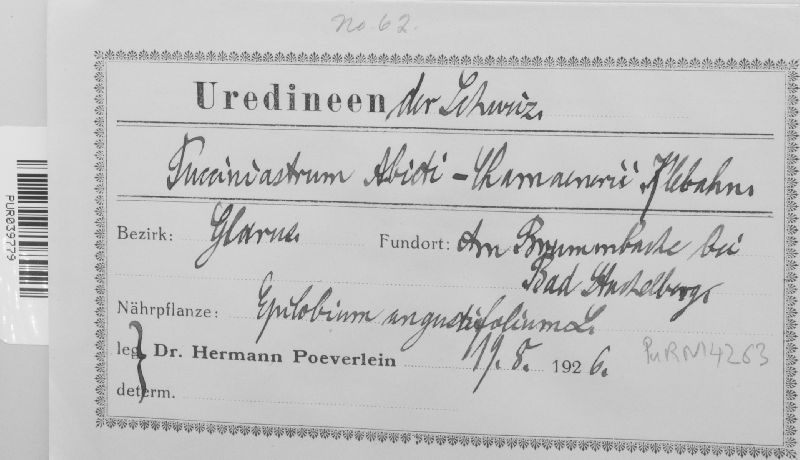 No. 62.
Uredineen der Schweiz.
Pucciniastrum Abieti-Chamaenerii Klebahn.
Bezirk: Glarus. Fundort: Am Brummbache bei
Bad Stachelberg.
Nährpflanze: Epilobium angustifolium L.
leg. Dr. Hermann Poeverlein 19. 8. 1926.
PURN14263
determ.
PUR039779